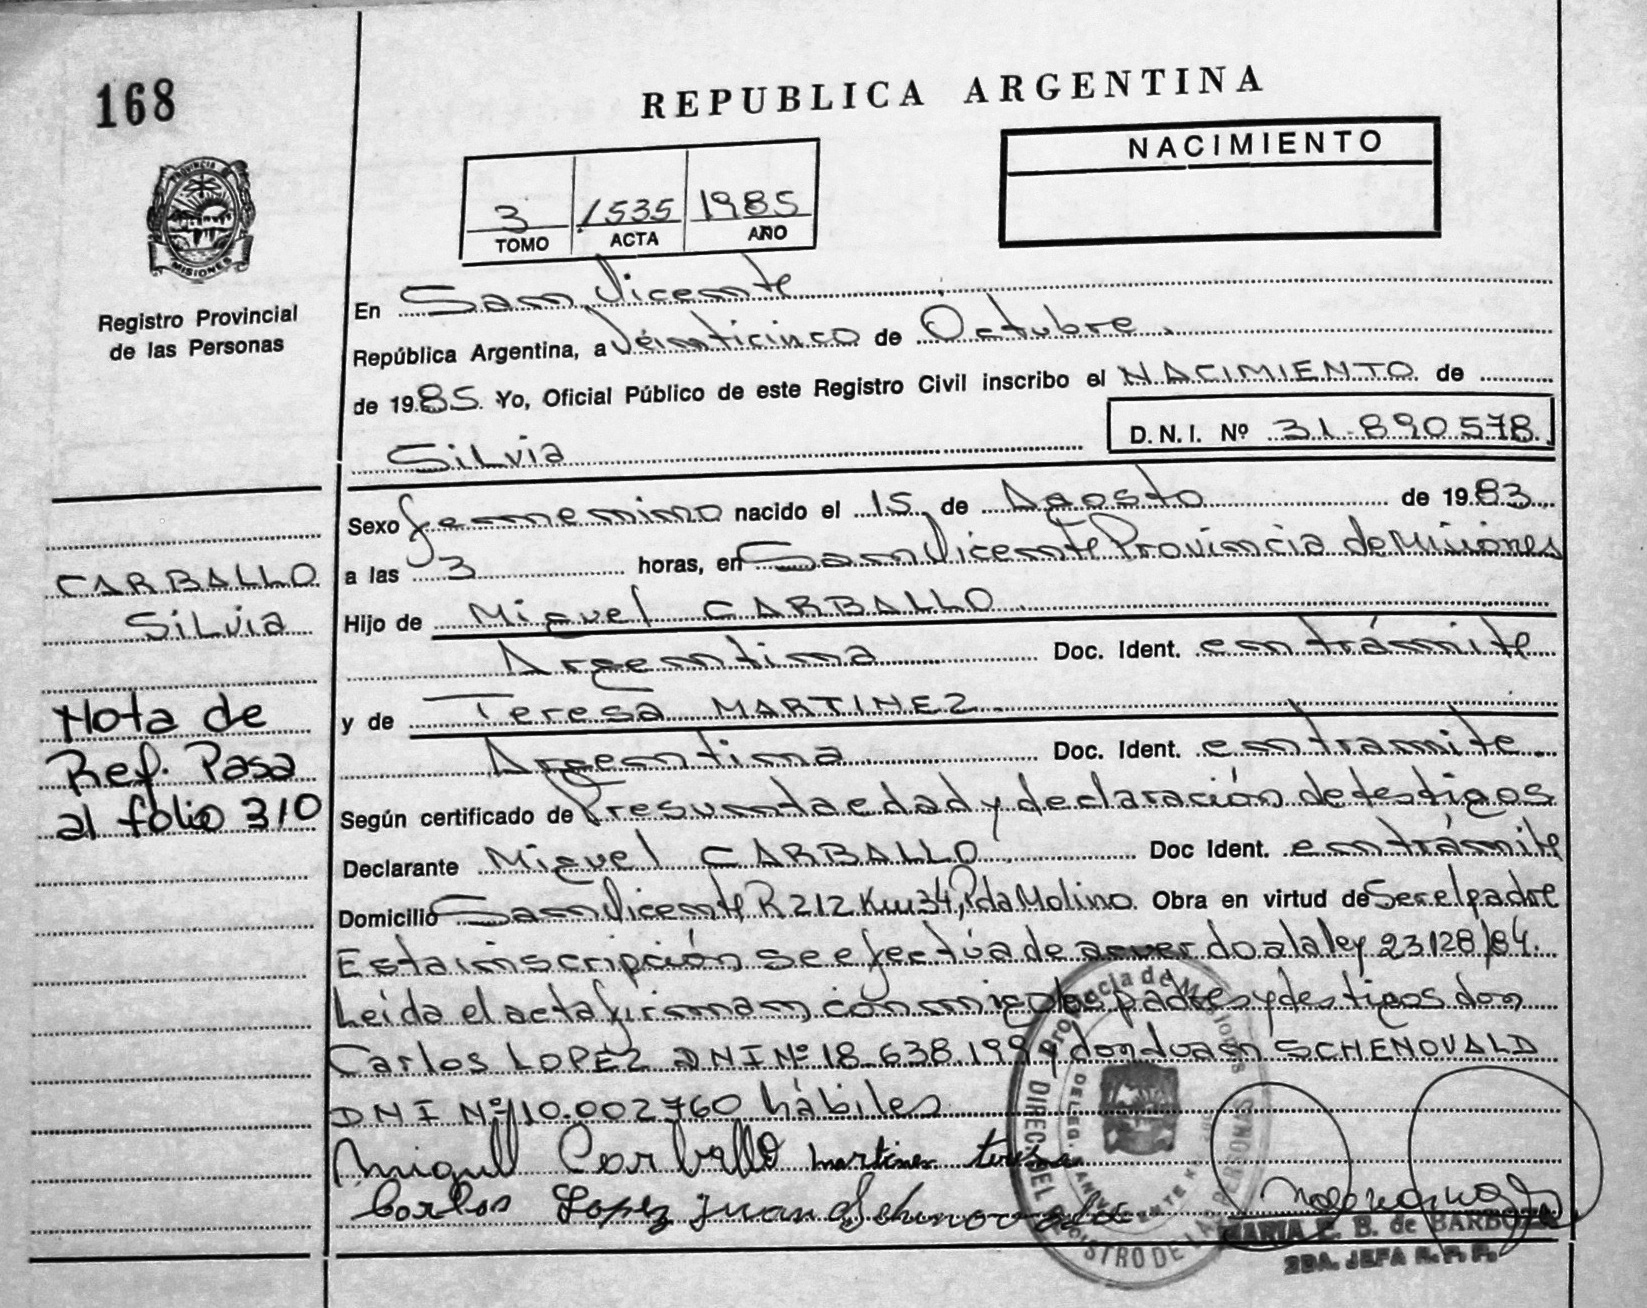 168
REPUBLICA ARGENTINA
NACIMIENTO
3 1535 1985
TOMO ACTA AÑO
PROVINCIA DE
MISIONES
Registro Provincial
de las Personas
En San Vicente
República Argentina, a Veinticinco de Octubre.
de 1985. Yo, Oficial Público de este Registro Civil inscribo el NACIMIENTO de
Silvia
D. N. I. Nº 31.890.578.
Sexo femenino nacido el 15 de Agosto de 1983
a las 3 horas, en San Vicente Provincia de Misiones
Hijo de Miguel CARBALLO
Argentina Doc. Ident. en trámite
y de Teresa MARTINEZ.
Argentina Doc. Ident. en tramite.
Según certificado de Presunta edad y declaración de testigos
Declarante Miguel CARBALLO Doc Ident. en trámite
Domicilio San Vicente R 212 Km 34, Pda Molino. Obra en virtud de Ser el padre
Esta inscripción se efectúa de acuerdo a la ley 23128/84.
Leída el acta firman conmigo los padres y testigos don
Carlos LOPEZ DNI Nº 18.638.199 y don Juan SCHENOVALD
DNI Nº 10.002760 hábiles
Miguel Carballo martines teresa
Carlos Lopez Juan Schenovald
CARBALLO
Silvia
Nota de
Ref. Pasa
al folio 310
Provincia de Misiones
DIREC. DEL REGISTRO DE LAS PERSONAS
MARIA E. B. de BARBOZA
2DA. JEFA R. P. P.